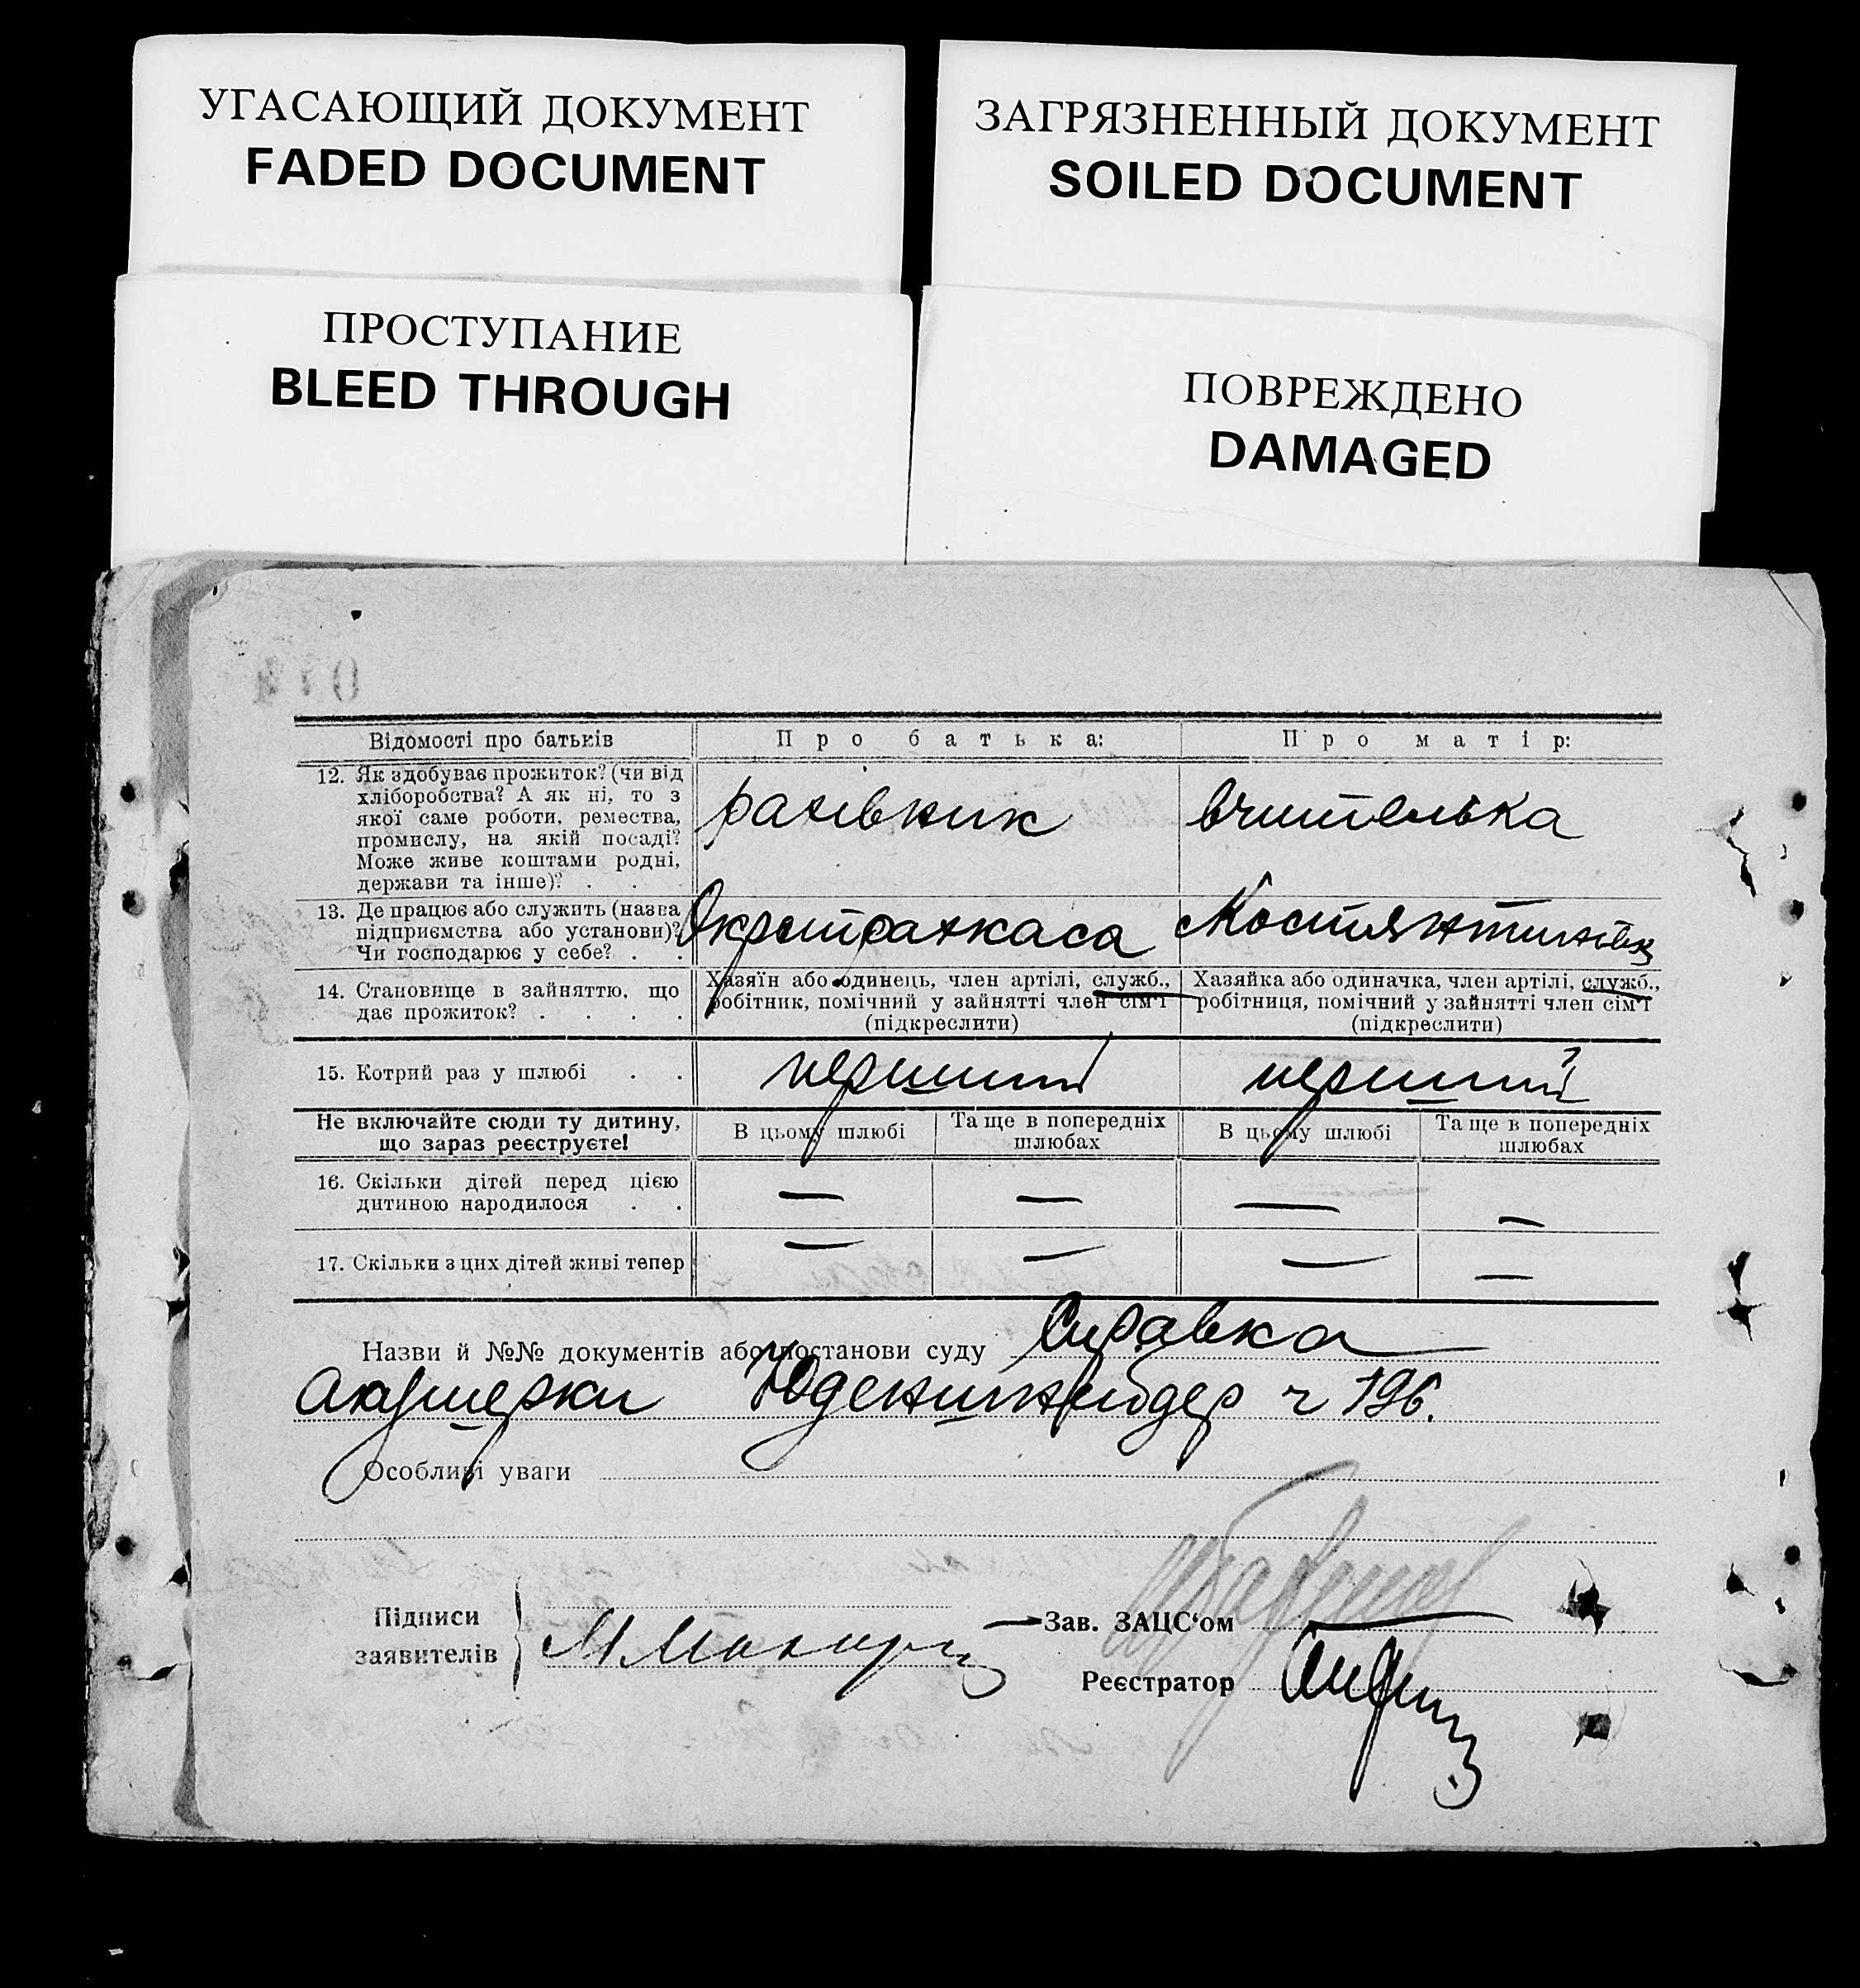 УГАСАЮЩИЙ ДОКУМЕНТ
FADED DOCUMENT
ЗАГРЯЗНЕННЫЙ ДОКУМЕНТ
SOILED DOCUMENT
ПРОСТУПАНИЕ
BLEED THROUGH
ПОВРЕЖДЕНО
DAMAGED
Відомості про батьків
Про батька:
Про матір:
12. Як здобуває прожиток? (чи від
хліборобства? А як ні, то з
якої саме роботи, ремества,
промислу, на якій посаді?
Може живе коштами родні,
держави та інше)? . .
рахівник
вчителька
13. Де працює або служить (назва
підприємства або установи)?
Чи господарює у себе? . .
Окрстрахкаса
14. Становище в зайняттю, що
дає прожиток? . . . .
Хазяїн або одинець, член артілі, служб.,
робітник, помічний у зайнятті член сім'ї
(підкреслити)
Хазяйка або одиначка, член артілі, служб.,
робітниця, помічний у зайнятті член сім'ї
(підкреслити)
15. Котрий раз у шлюбі . .
перший
перший
Не включайте сюди ту дитину,
що зараз реєструєте!
В цьому шлюбі
Та ще в попередніх
шлюбах
В цьому шлюбі
Та ще в попередніх
шлюбах
16. Скільки дітей перед цією
дитиною народилося . .
— — — —
17. Скільки з цих дітей живі тепер
— — — —
Назви й №№ документів або постанови суду Справка
акушерки ч 196.
Особливі уваги
Підписи
заявителів
Зав. ЗАЦС'ом
Реєстратор